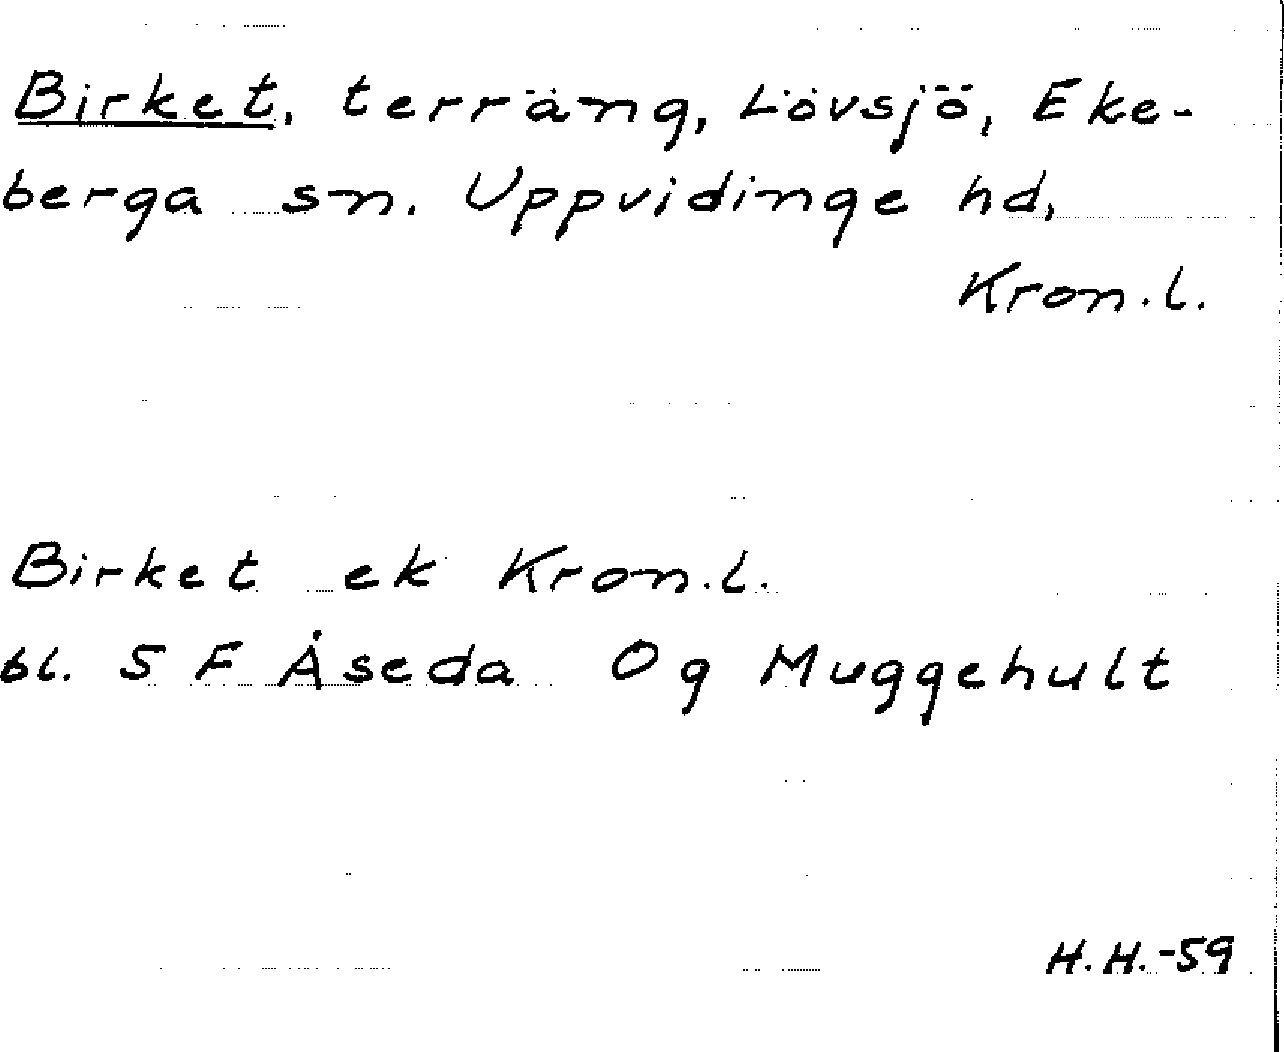 Birket, terräng, Lövsjö, Eke-
berga sn. Uppvidinge hd,
Kron.l.
Birket ek Kron.l.
bl. 5 F Åseda Og Muggehult
H.H.-59